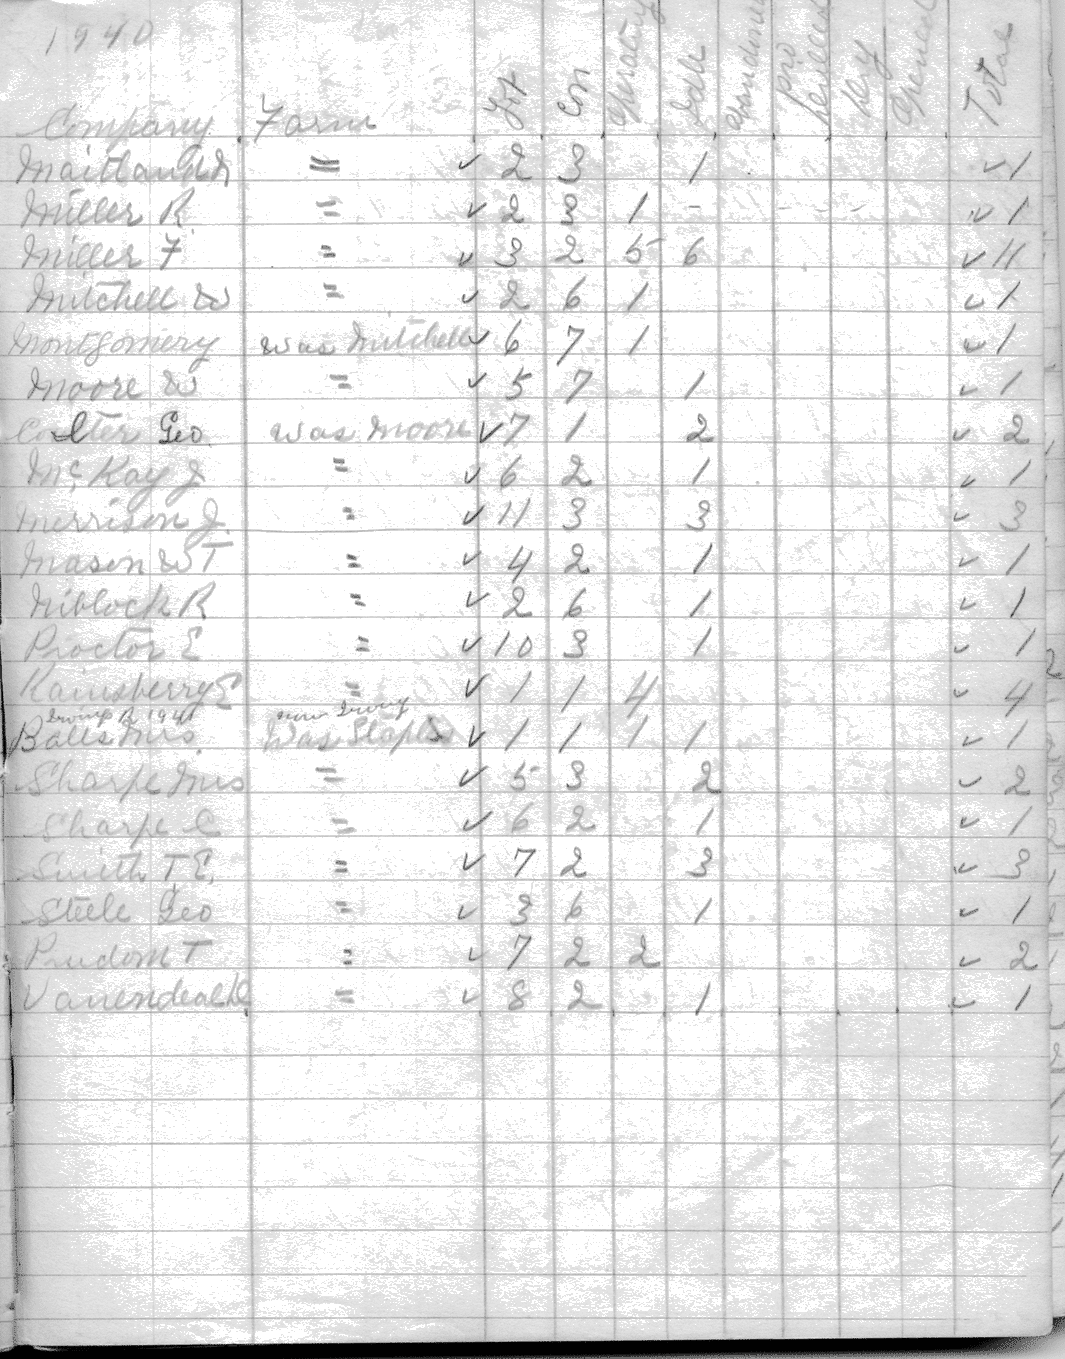 1940
Company Farm Lot Con operating Idle abandoned pro Total
Maitland = ✓ 2 3 1 ✓ 1
Miller R = ✓ 2 3 1 - - - - ✓ 1
Miller F = ✓ 3 2 5 6 ✓ 11
Mitchell W = ✓ 2 6 1 ✓ 1
Montgomery was Mitchell ✓ 6 7 1 ✓ 1
Moore W = ✓ 5 7 1 ✓ 1
Coulter Geo was Moore ✓ 7 1 2 ✓ 2
McKay J = ✓ 6 2 1 ✓ 1
Merrison J. = ✓ 11 3 3 ✓ 3
Mason W T = ✓ 4 2 1 ✓ 1
Niblock R = ✓ 2 6 1 ✓ 1
Proctor E = ✓ 10 3 1 ✓ 1
Rainsberry E = ✓ 1 1 4 ✓ 4
Irving R 1941 now Irving
Bates Mrs. was Staples ✓ 1 1 1 1 ✓ 1
Sharpe Mrs = ✓ 5 3 2 ✓ 2
Sharpe C = ✓ 6 2 1 ✓ 1
Smith T. E. = ✓ 7 2 3 ✓ 3
Steele Geo = ✓ 3 6 1 ✓ 1
Prudom T = ✓ 7 2 2 ✓ 2
= ✓ 8 2 1 ✓ 1